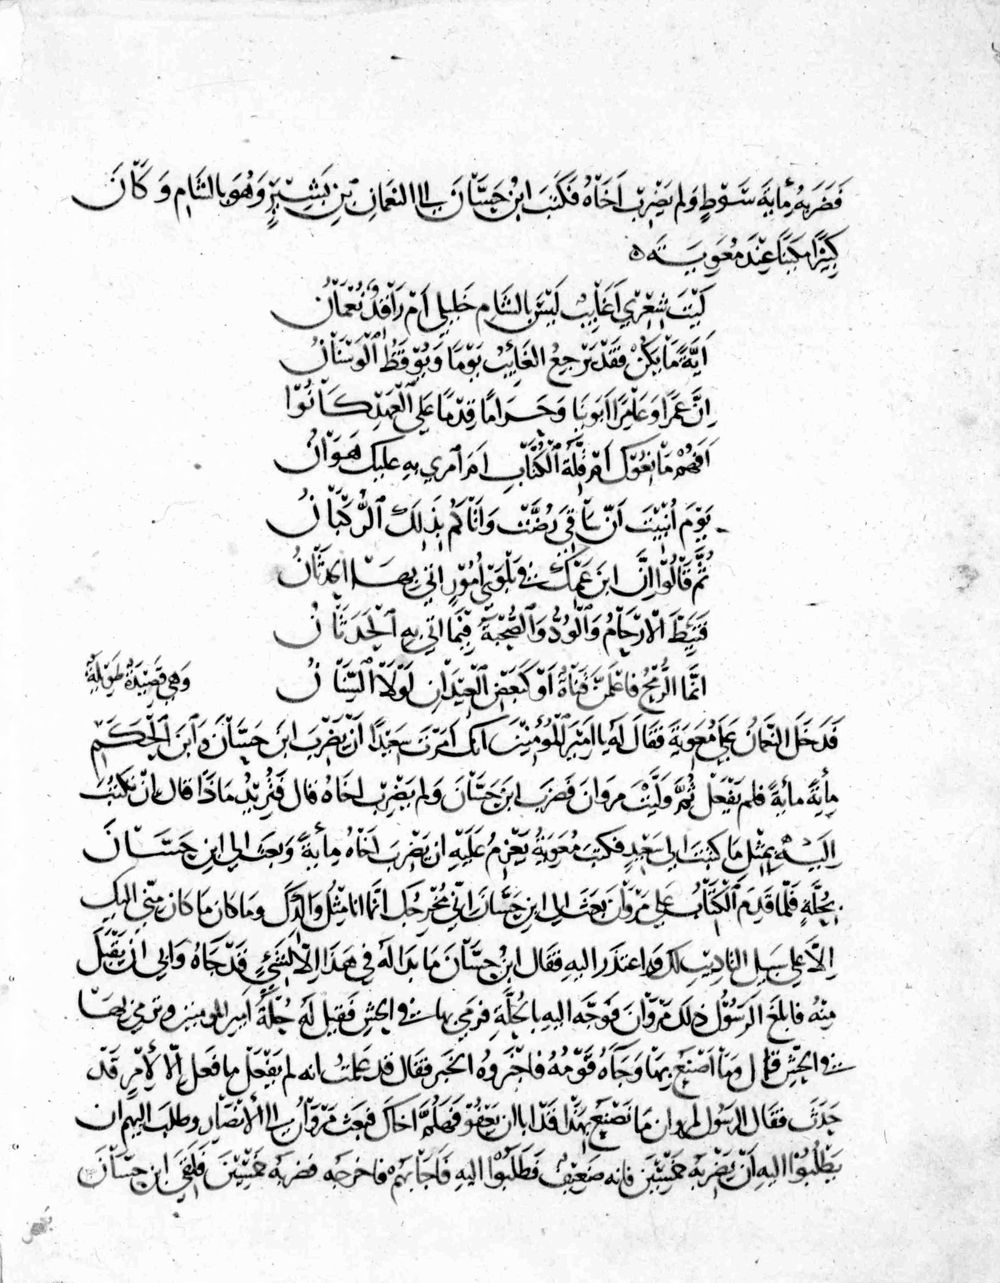 فَضَرَبَهُ مِأيَةَ سَوْطٍ وَلم يَضْرِب اَخَاهُ فَكَتَبَ ابْنُ حَسَّانَ الى النعمَانِ بْنِ بَشِيْرٍ وَهُوَ بِالشَّام وَكَانَ
كَبِيْرًا مَكِينًا عِنْدَ مُعَوِيَةَ ه
لَيْتَ شِعْرِي اَغَايِبٌ لَيْسَ بِالشَّام خَلِيلي اَمْ رَاقدٌ نُعْمَانُ
اَيَّةً مَا يَكُنْ فَقَدْ يَرْجِعُ الغَائِبُ يَوْمًا وَيُوْقَظُ الْوَسْنَانُ
اِنَّ عَمْرًا وَعَامِرًا اَبَوَيْنَا وَحَرَامًا قِدْمًا عَلَى الْعَهْدِ كَانُوْا
اَفَهُمْ مَانِعُوْكَ اَمْ قِلَّةُ الْكُتَّابِ اَمْ اَمري بِهِ عليك هَوَانُ
يَوْمَ اُنْبِيْتَ اَنَّ سَاقِي رُضَّتْ وَاَتَاكُم بِذَلِكَ الرُّكْبَانُ
ثُمَّ قَالُوْا اِنَّ ابنَ عَمِّكَ في بَلْوَى اُمُوْرٍ اتى بِهَا الحدثَانُ
فَنَيِطَ الْاَرْحَامُ وَالْوُدُّ وَالصُّحْبَةُ فِيْمَا اتى بِهِ الْحَدَثَانُ
انَّمَا الرُّمْحُ فاعْلَمَنَّ قَنَاةٌ اَوْ كَبَعْضِ الْعِيْدَانِ لَوْلَا السِّنَانُ وَهي قَصِيْدَةٌ طَوِيْلَةٌ
فَدَخَلَ النُّعْمَانُ عَلَى مُعَوِيَةَ فَقَالَ لَهُ يا امِيْرَ المُؤْمِنِيْنَ انك اَمَرْتَ سَعِيْدًا اَنْ يَضْرِبَ ابنَ حَسَّانَ وَابْنَ الْحَكَمِ
مِأيَةً مِأيَةً فلم يَفْعَلْ ثُمَّ وَلَّيْتَ مروَانَ فَضَرَبَ ابنَ حَسَّانَ وَلم يَضْرِب اخَاهُ قال فَتُرِيْدُ مَاذَا قال اَنْ تَكْتُبَ
اِلَيْهِ بِمِثْلِ مَا كَتَبْتَ الى سَعِيْدٍ فكتب مُعَوِيَةُ يَعْزِمُ عَلَيْهِ ان يَضْرِبَ اخَاهُ مِأيَةً وَبَعَثَ الى ابنِ حَسَّانَ
بِحُلَّةٍ فَلَمَّا قَدِمَ الْكِتَابُ على مَرْوَانَ بَعَثَ الى ابنِ حَسَّانَ انّى مُخْرِجُكَ انَّمَا انا مِثْلُ وَالِدِكَ وما كان ما كان مِنّي اليك
اِلَّا على سَبِيلِ التاديبِ لك واعتذر اليه فقال ابْنُ حَسَّانَ مَا بَدَا لَهُ في هَذَا اِلَّا لِشَيْءٍ قَدْ جَاءَهُ وَابى ان يَقْبَلَ
مِنْهُ فابلغ الرَّسُوْلُ ذلك مَرْوَانَ فَوَجَّهَ اليه بِالحُلَّةِ فرمى بها في الحُشِّ فقيل لَهُ حُلَّةُ امير المومنين وترمي بِهَا
في الحُشِّ قال وما اَصْنَعُ بِهَا وَجَاءَهُ قَوْمُهُ فاخْبَرُوهُ الخبر فقال قد علمتُ انه لم يَفْعَلْ ما فعل اِلَّا لِاَمْرٍ قَدْ
حَدَثَ فقال الرسُولُ لمروان ما تَصْنَعُ بِهَذَا قَدْ ابا ان يَعْفُوَ فَهَلُمَّ اخاك فبعث مَرْوَانُ الى الْاَنْصَارِ وطلب اليهم ان
يَطْلُبُوْا اليه اَنْ يَضْرِبَهُ خَمْسِيْنَ فانه ضَعِيْفٌ فَطَلَبُوْا اليه فاجَابَهُمْ فاخرجه فضربهُ خَمْسِيْنَ فَلَقِيَ ابنَ حَسَّانَ